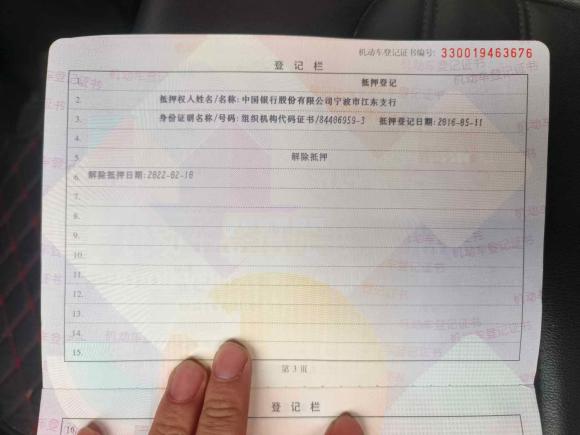 机动车登记证书编号: 330019463676
登记栏
1. 抵押登记
2. 抵押权人姓名/名称:中国银行股份有限公司宁波市江东支行
3. 身份证明名称/号码:组织机构代码证书/84406959-3 抵押登记日期:2016-05-11
4.
5. 解除抵押
6. 解除抵押日期:2022-02-18
7.
8.
9.
10.
11.
12.
13.
14.
15.
第3页
登记栏
16.